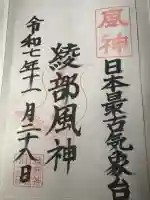 風神
日本最古気象台
綾部風神
令和七年十一月二十八日